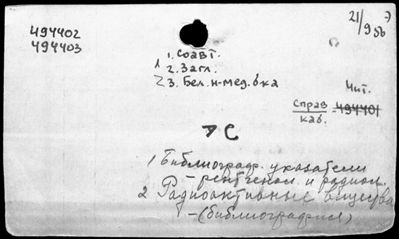 21/9 56
494402
494403
1. Соавт.
1 2. Загл.
2 3. Бел. н-мед. б-ка
Чит.
Справ каб. 494401
АС
1 Библиограф. указатели
- рентгенол. и радиол.
2. Радиоактивные вещества
- (библиография)